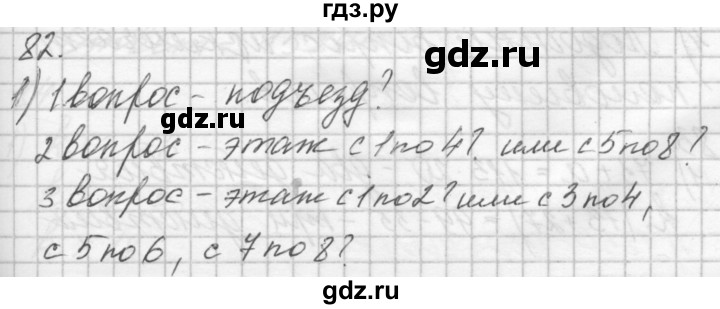 гдз.ру
82.
1) 1 вопрос - подъезд?
gdz.ru
2 вопрос - этаж с 1 по 4? или с 5 по 8?
3 вопрос - этаж с 1 по 2? или с 3 по 4,
с 5 по 6, с 7 по 8?
gdz.ru